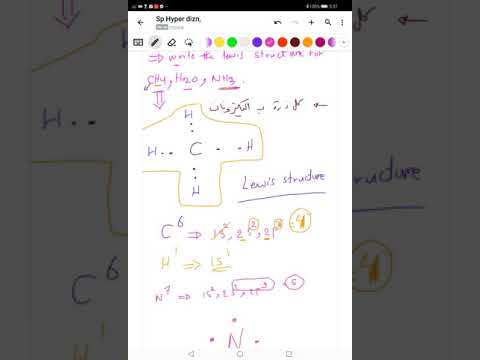 Sp Hyper dizn,
⇒ write the lewis structure for
CH4, H2O, NH3.
← كل ذرة ب الكترونات
H
H : C : H
H
Lewis structure
C⁶ ⇒ 1s², 2s², 2p² = 4
H¹ ⇒ 1s¹
N⁷ ⇒ 1s², 2s², 2p³ = 5
N